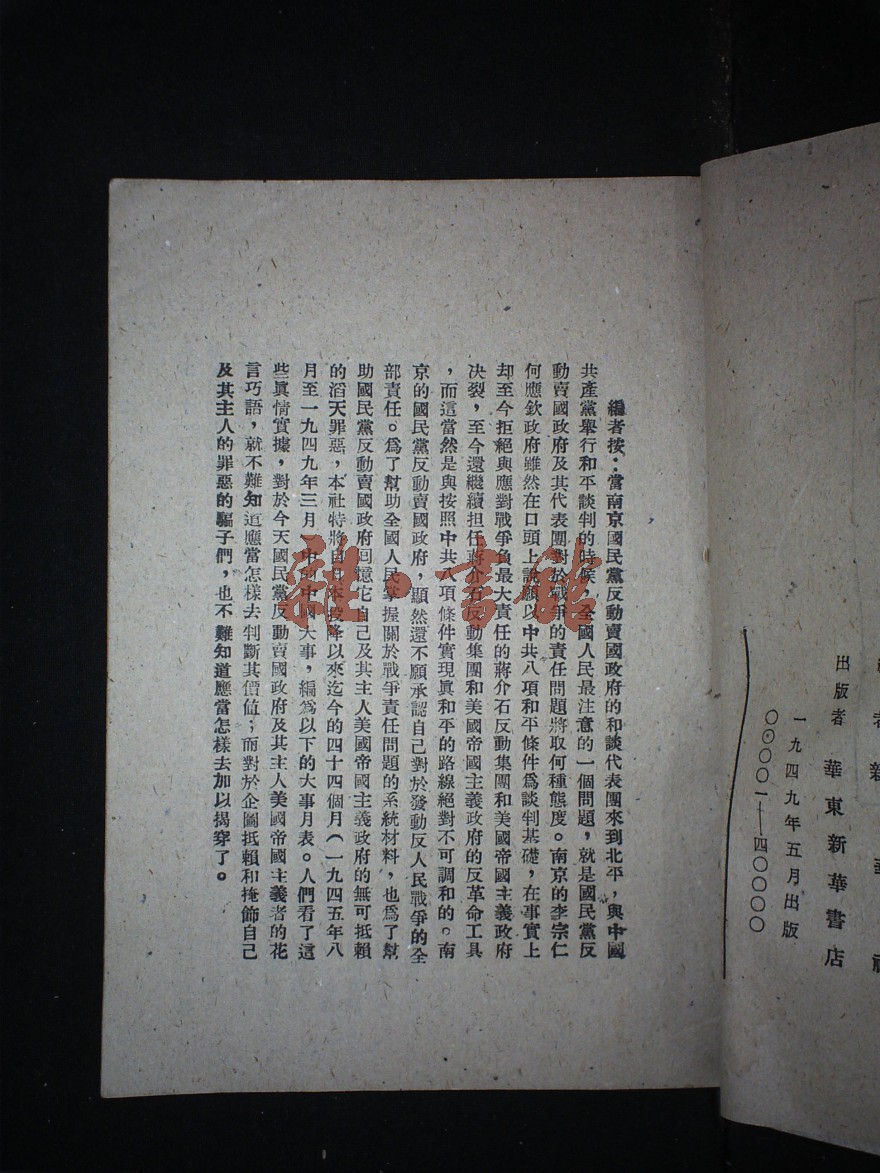 編者按：當南京國民黨反動賣國政府的和談代表團來到北平，與中國
共產黨舉行和平談判的時候，全國人民最注意的一個問題，就是國民黨反
動賣國政府及其代表團對於戰爭的責任問題將取何種態度。南京的李宗仁
何應欽政府雖然在口頭上說願以中共八項和平條件爲談判基礎，在事實上
却至今拒絕與應對戰爭負最大責任的蔣介石反動集團和美國帝國主義政府
決裂，至今還繼續担任蔣介石反動集團和美國帝國主義政府的反革命工具
，而這當然是與按照中共八項條件實現眞和平的路線絕對不可調和的。南
京的國民黨反動賣國政府，顯然還不願承認自己對於發動反人民戰爭的全
部責任。爲了幫助全國人民掌握關於戰爭責任問題的系統材料，也爲了幫
助國民黨反動賣國政府回憶它自己及其主人美國帝國主義政府的無可抵賴
的滔天罪惡，本社特將自日本投降以來迄今的四十四個月（一九四五年八
月至一九四九年三月）中的中國大事，編爲以下的大事月表。人們看了這
些眞情實據，對於今天國民黨反動賣國政府及其主人美國帝國主義者的花
言巧語，就不難知道應當怎樣去判斷其價値；而對於企圖抵賴和掩飾自己
及其主人的罪惡的騙子們，也不難知道應當怎樣去加以揭穿了。
者 新 華
出版者 華東新華書店
一九四九年五月出版
〇〇〇〇一——四〇〇〇〇
雜·書館